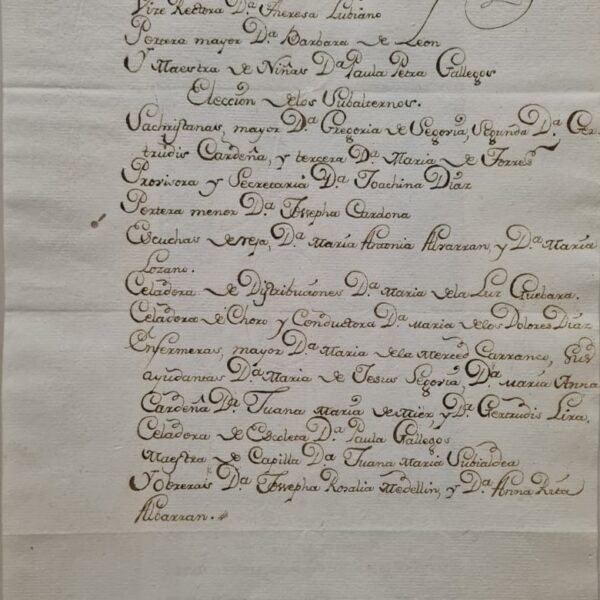 Vize Rectora D.ª Theresa Lubiano
Portera mayor D.ª Barbara de Leon
Y Maestra de Niñas D.ª Paula Petra Gallegos
Eleccion delos Subalternos.
Sachristanas, mayor D.ª Gregoria de Segovia, Segunda D.ª Ger-
trudis Cardeña, y tercera D.ª Maria de Torres
Provisora y Secretaria D.ª Joachina Diaz
Portera menor D.ª Josepha Cardona
Escuchas de reja, D.ª Maria Antonia Alvarran, y D.ª Maria
Lozano.
Celadora de Distribuciones D.ª Maria dela Luz Guebara.
Celadora de Choro y Conductora D.ª Maria delos Dolores Diaz
Enfermeras, mayor D.ª Maria dela Merced Carranco, sus
ayudantas D.ª Maria de Jesus Segovia, D.ª Maria Anna
Cardeña D.ª Juana Maria de Mier y D.ª Gertrudis Lira.
Celadora de Escoleta D.ª Paula Gallegos
Maestra de Capilla D.ª Juana Maria Subialdea
Y Obreras D.ª Josepha Rosalia Medellin, y D.ª Anna Rita
Albarran.